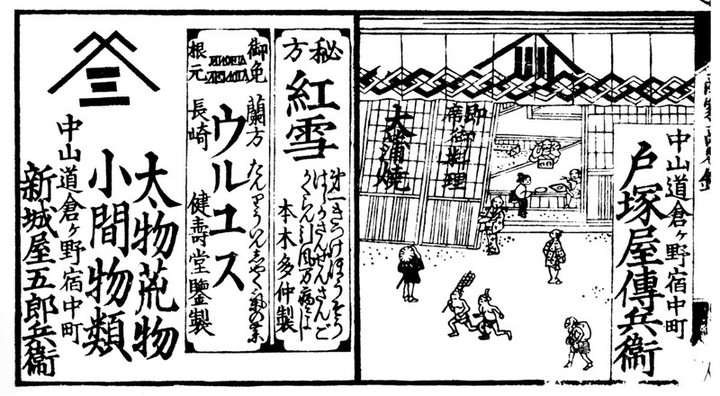 中山道倉ヶ野宿中町
戸塚屋傳兵衞
即席御料理
大蒲焼
秘方
紅雪
本木多仲製
御免
根元
蘭方
ウルユス
長崎 健壽堂鑒製
三
太物荒物
小間物類
中山道倉ヶ野宿中町
新城屋五郎兵衞